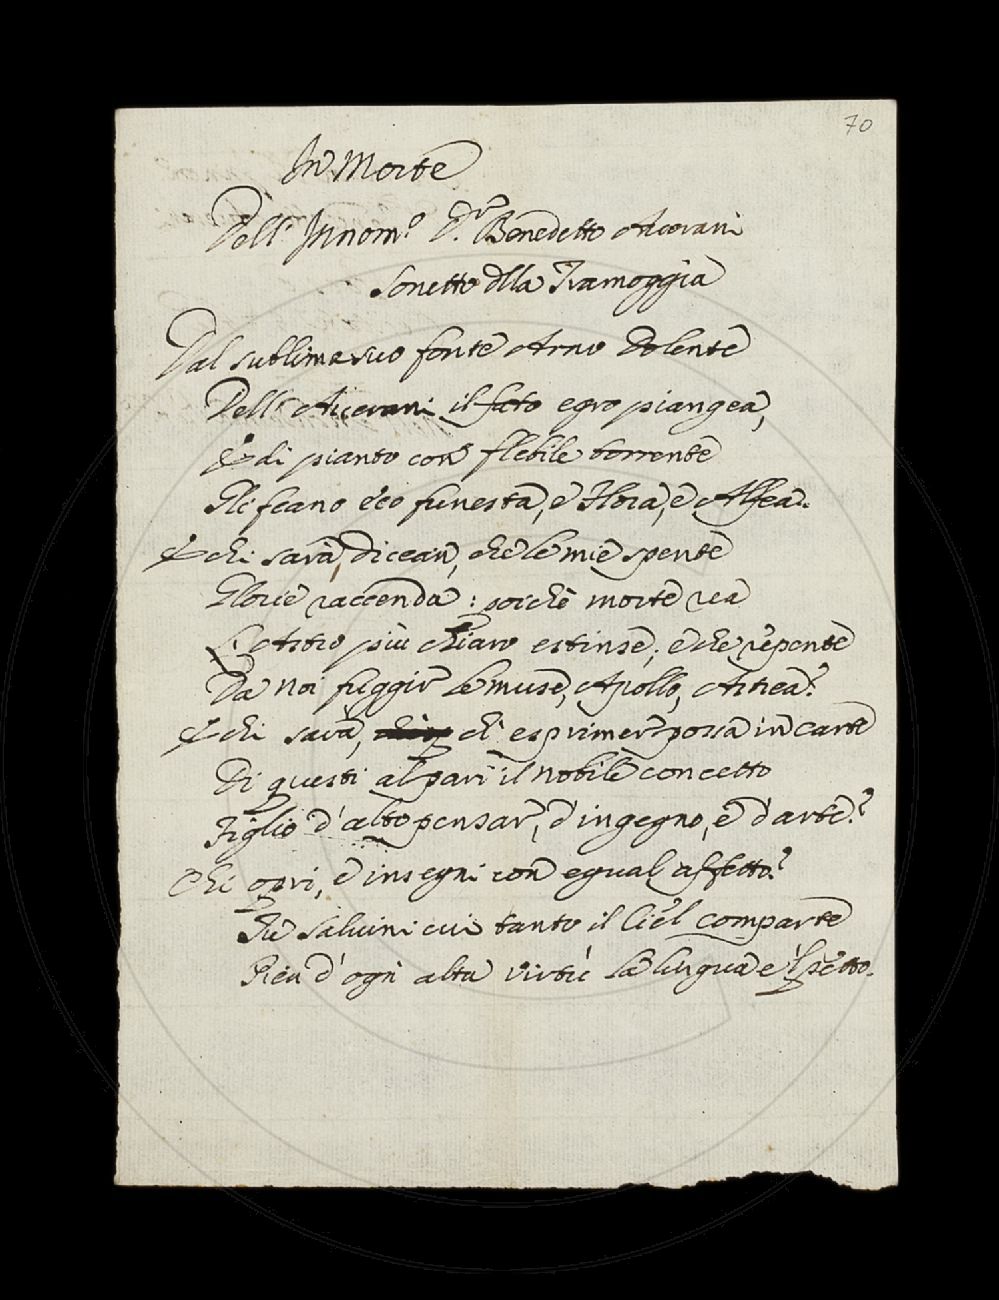 70
In Morte
Dell' Innom.º D.r Benedetto Averani
Sonetto dlla Tramoggia
Dal sublime suo fonte Arno dolente
Dell' Averani il fato egro piangea,
E di pianto con flebile torrente
Gli feano eco funesta, e Flora, e Alfea.
E chi sarà, dicean, che le mie spente
Glorie raccenda: poiche morte rea
L'Astro più chiaro estinse, e che repente
Da noi fuggir le muse, Apollo, Astrea?
E chi sarà, ch' esprimer possa in carte
Di questi al pari il nobile concetto
Figlio d'alto pensar, d'ingegno, e d'arte?
Chi opri, e insegni con egual affetto?
Tu Salvini cui tanto il Ciel comparte
Pien d'ogni alta virtù la lingua e 'l petto.